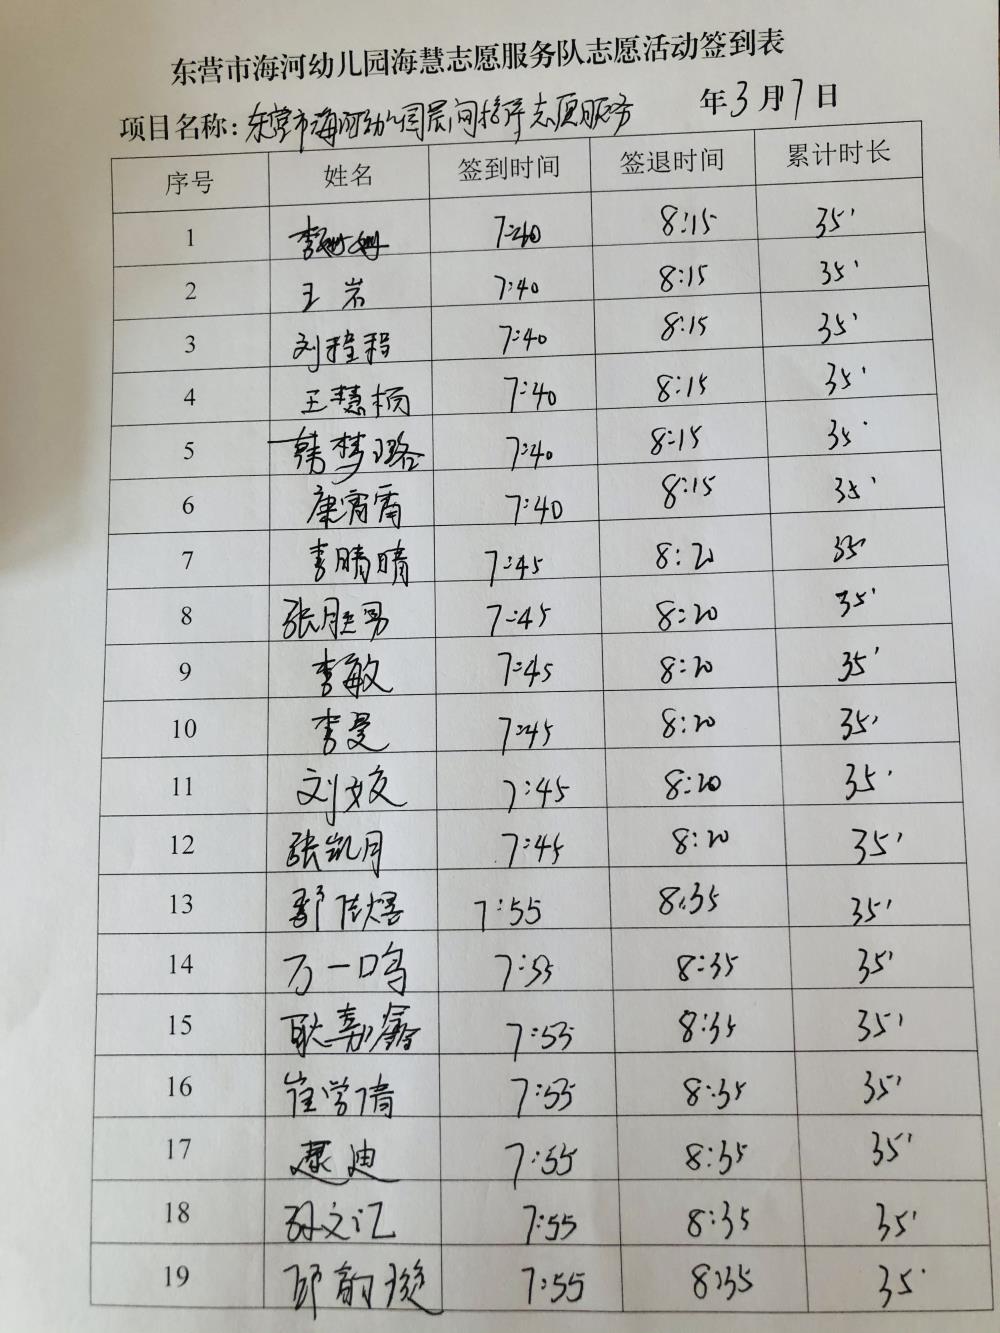 东营市海河幼儿园海慧志愿服务队志愿活动签到表
项目名称:东营市海河幼儿园晨间指挥志愿服务 年3月7日
序号 姓名 签到时间 签退时间 累计时长
1 李姗姗 7:40 8:15 35'
2 王岩 7:40 8:15 35'
3 刘程程 7:40 8:15 35'
4 王慧杨 7:40 8:15 35'
5 韩梦璐 7:40 8:15 35'
6 康宵雷 7:40 8:15 35'
7 李晴晴 7:45 8:20 35'
8 张胜男 7:45 8:20 35'
9 李敏 7:45 8:20 35'
10 李曼 7:45 8:20 35'
11 刘姣 7:45 8:20 35'
12 张凯月 7:45 8:20 35'
13 7:55 8:35 35'
14 万一鸣 7:55 8:35 35'
15 耿嘉鑫 7:55 8:35 35'
16 崔学倩 7:55 8:35 35'
17 迪 7:55 8:35 35'
18 孙文汇 7:55 8:35 35'
19 邱韵璇 7:55 8:35 35'